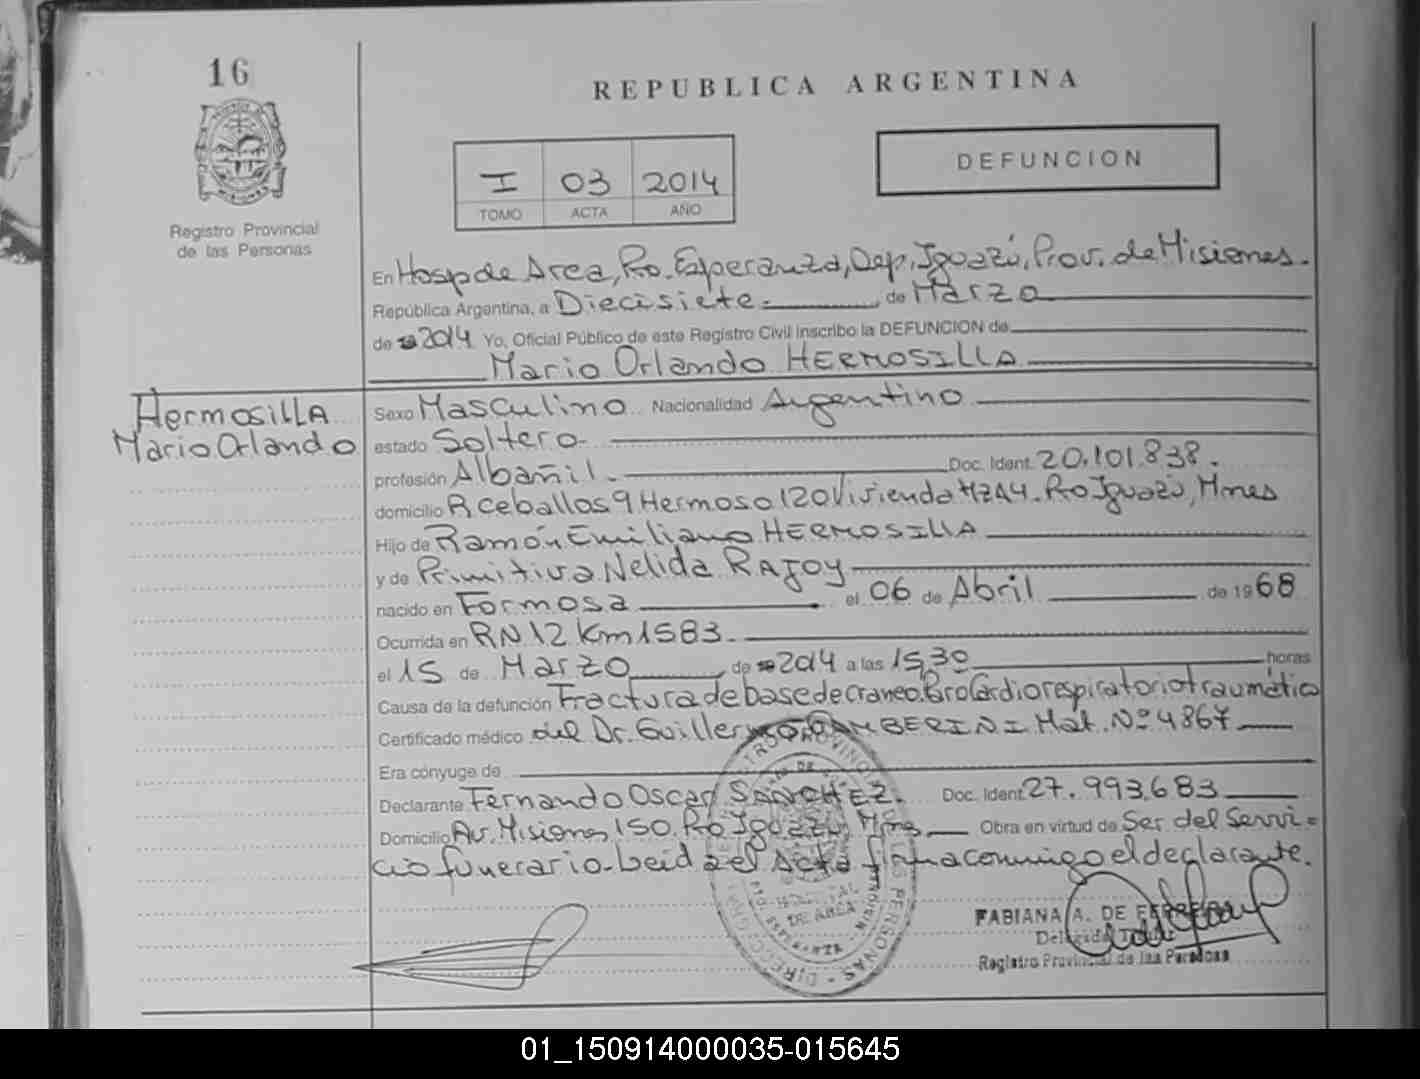 16
REPUBLICA ARGENTINA
I 03 2014
TOMO ACTA AÑO
DEFUNCION
Registro Provincial
de las Personas
En Hosp de Area, Pto. Esperanza, Dep. Iguazú, Prov. de Misiones.
República Argentina, a Diecisiete. de Marzo
de 2014 Yo, Oficial Público de este Registro Civil Inscribo la DEFUNCION de
Mario Orlando HERMOSILLA
HermosiLLA
Mario Orlando
Sexo Masculino Nacionalidad Argentino
estado Soltero.
profesión Albañil. Doc. Ident. 20.101.838.
domicilio R Ceballos 9 Hermoso 120 Vivienda Mz A4. Pto Iguazú, Mnes
Hijo de Ramón Emiliano HERMOSILLA
y de Primitiva Nelida RAJOY
nacido en Formosa el 06 de Abril de 1968
Ocurrida en RN 12 Km 1583.
el 15 de Marzo de 2014 a las 15,30 horas
Causa de la defunción Fractura de base de craneo. Paro Cardiorespiratorio traumático
Certificado médico del Dr. Guillermo GAMBERINI Mat. Nº 4867
Era cónyuge de
Declarante Fernando Oscar SANCHEZ. Doc. Ident. 27.993.683
Domicilio Av. Misiones 150. Pto Iguazú, Mnes Obra en virtud de Ser del Servi=
cio funerario. Leida el Acta firma conmigo el declarante.
HOSPITAL
DE AREA
PTO. ESPERANZA
FABIANA A. DE
Delegada
Registro Provincial de las Personas
01_150914000035-015645